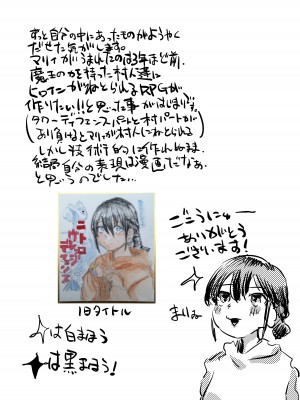 ずっと自分の中にあったものがようやく
だせた気がします。
マリィがうまれたのは3年ほど前、
魔王の力を持った村人達に
ヒロインがねとられるRPGが
作りたい!!と思った事がはじまりです。
(タワーディフェンスパートと村パートがあり
負けるとマリィが村人にねとられる)
しかし技術的に作れぬまま、
結局自分の表現は漫画だなあ
と思うのでした…
旧タイトル
☆は白まほう
は黒まほう!
ごこうにゅー
ありがとう
ございます!